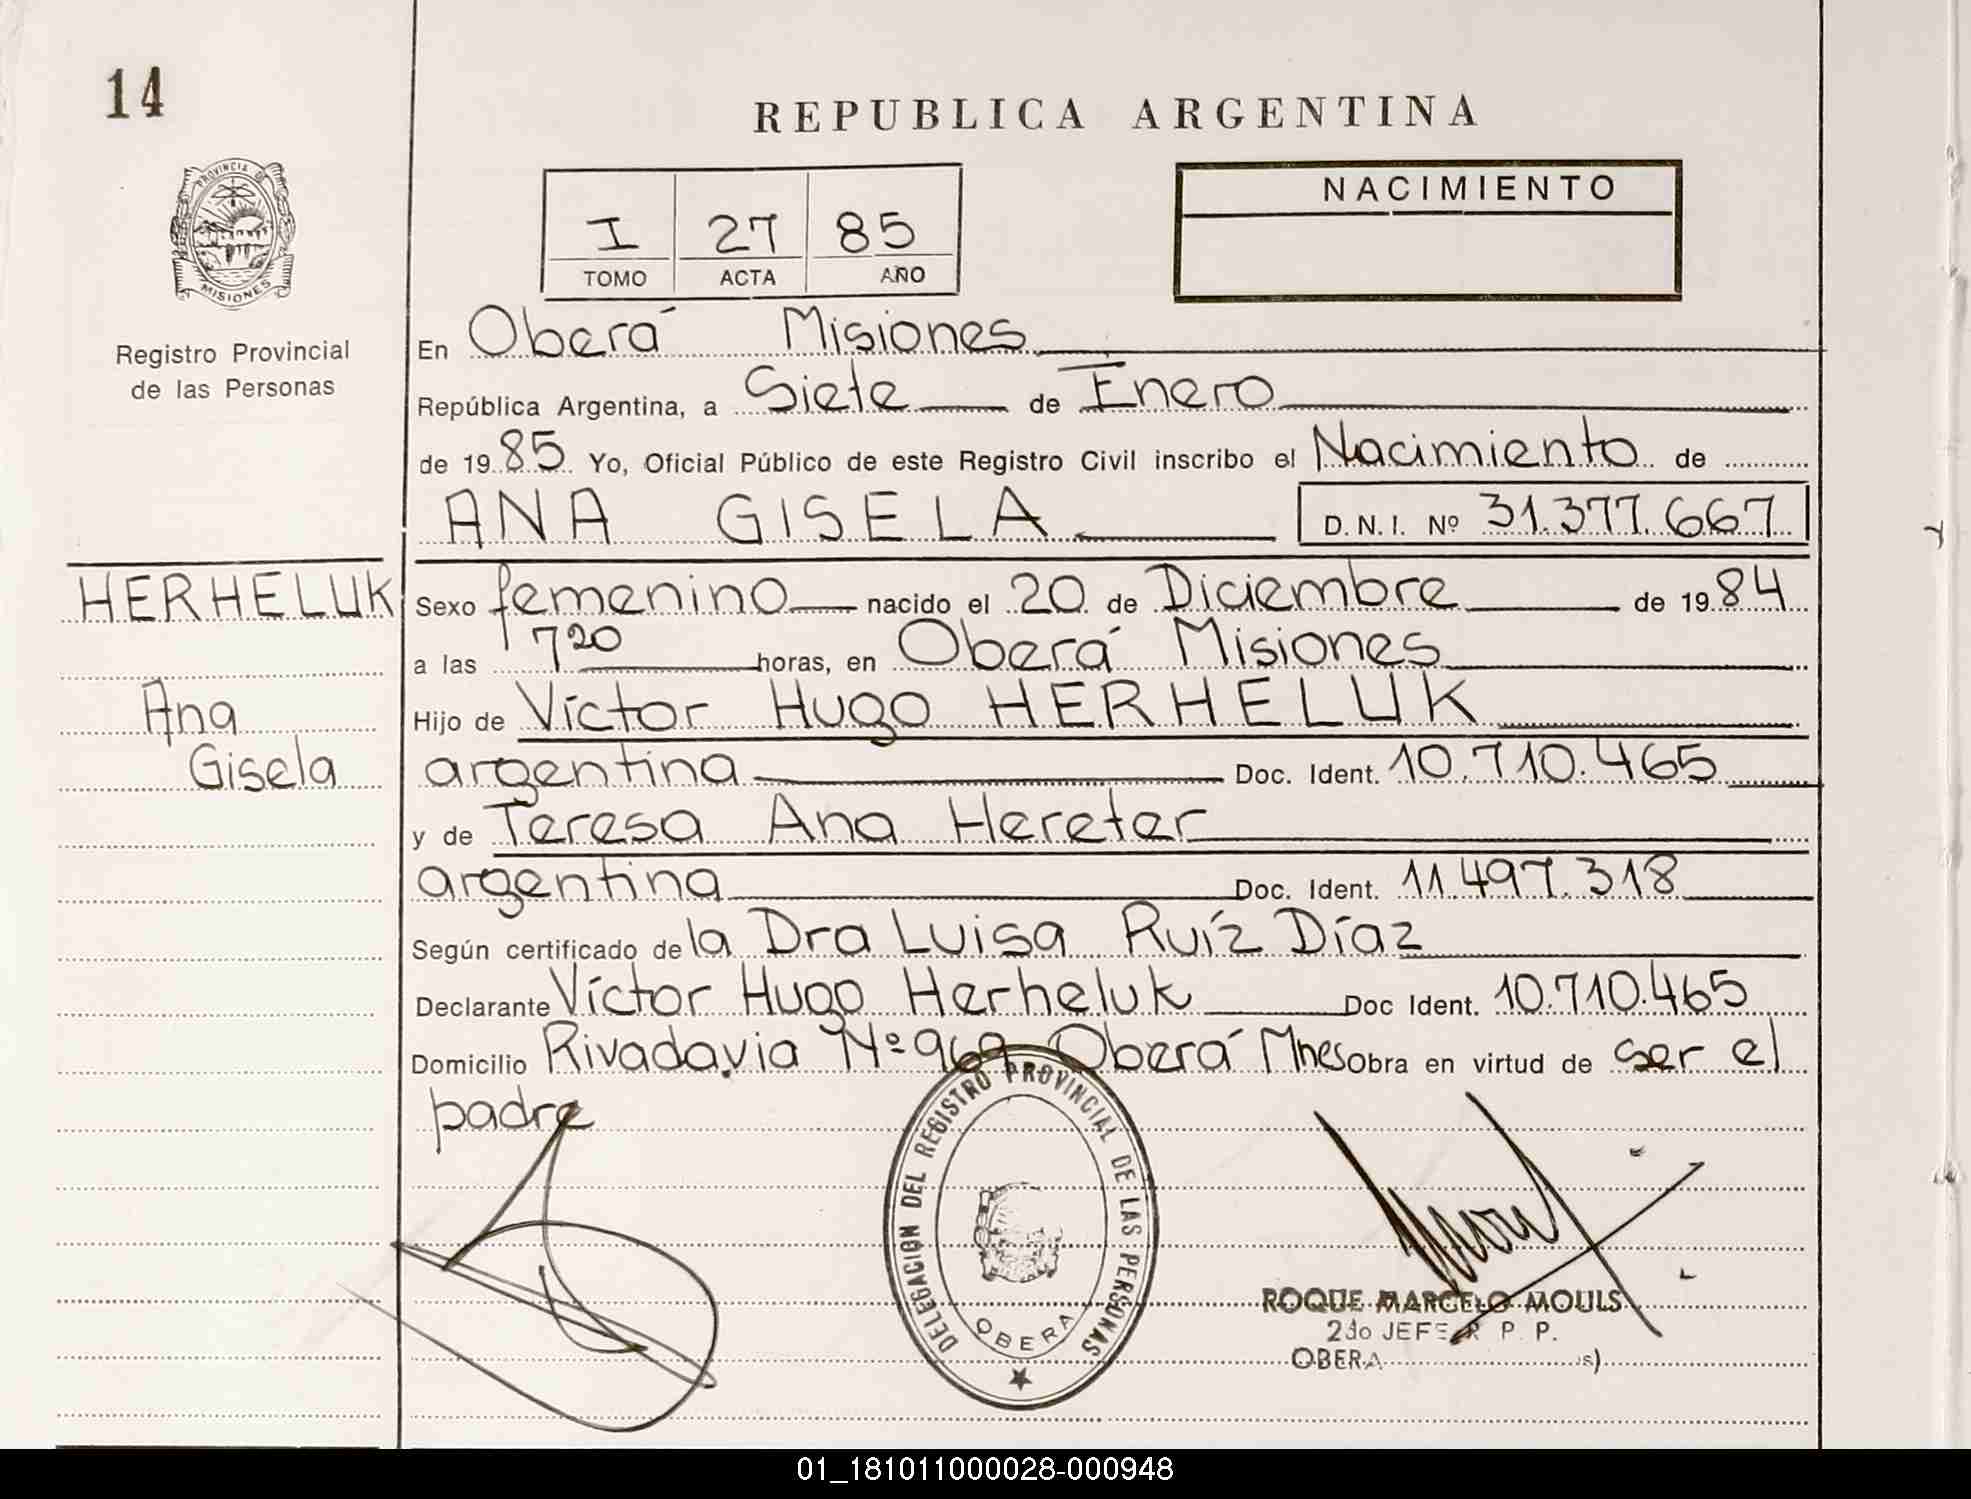 14
REPUBLICA ARGENTINA
PROVINCIA DE
MISIONES
Registro Provincial
de las Personas
I 27 85
TOMO ACTA AÑO
NACIMIENTO
En Oberá Misiones
República Argentina, a Siete de Enero
de 1985 Yo, Oficial Público de este Registro Civil inscribo el Nacimiento de
ANA GISELA D.N.I. Nº 31.377.667
HERHELUK
Ana
Gisela
Sexo femenino nacido el 20 de Diciembre de 1984
a las 7 20 horas, en Oberá Misiones
Hijo de Víctor Hugo HERHELUK
argentina Doc. Ident. 10.710.465
y de Teresa Ana Hereter
argentina Doc. Ident. 11.497.318
Según certificado de la Dra Luisa Ruíz Díaz
Declarante Víctor Hugo Herheluk Doc Ident. 10.710.465
Domicilio Rivadavia Nº 969 Oberá Mnes Obra en virtud de ser el
padre
DELEGACION DEL REGISTRO PROVINCIAL DE LAS PERSONAS
OBERA
ROQUE MARCELO MOULS
2do JEFE R P. P.
OBERA s)
01_181011000028-000948